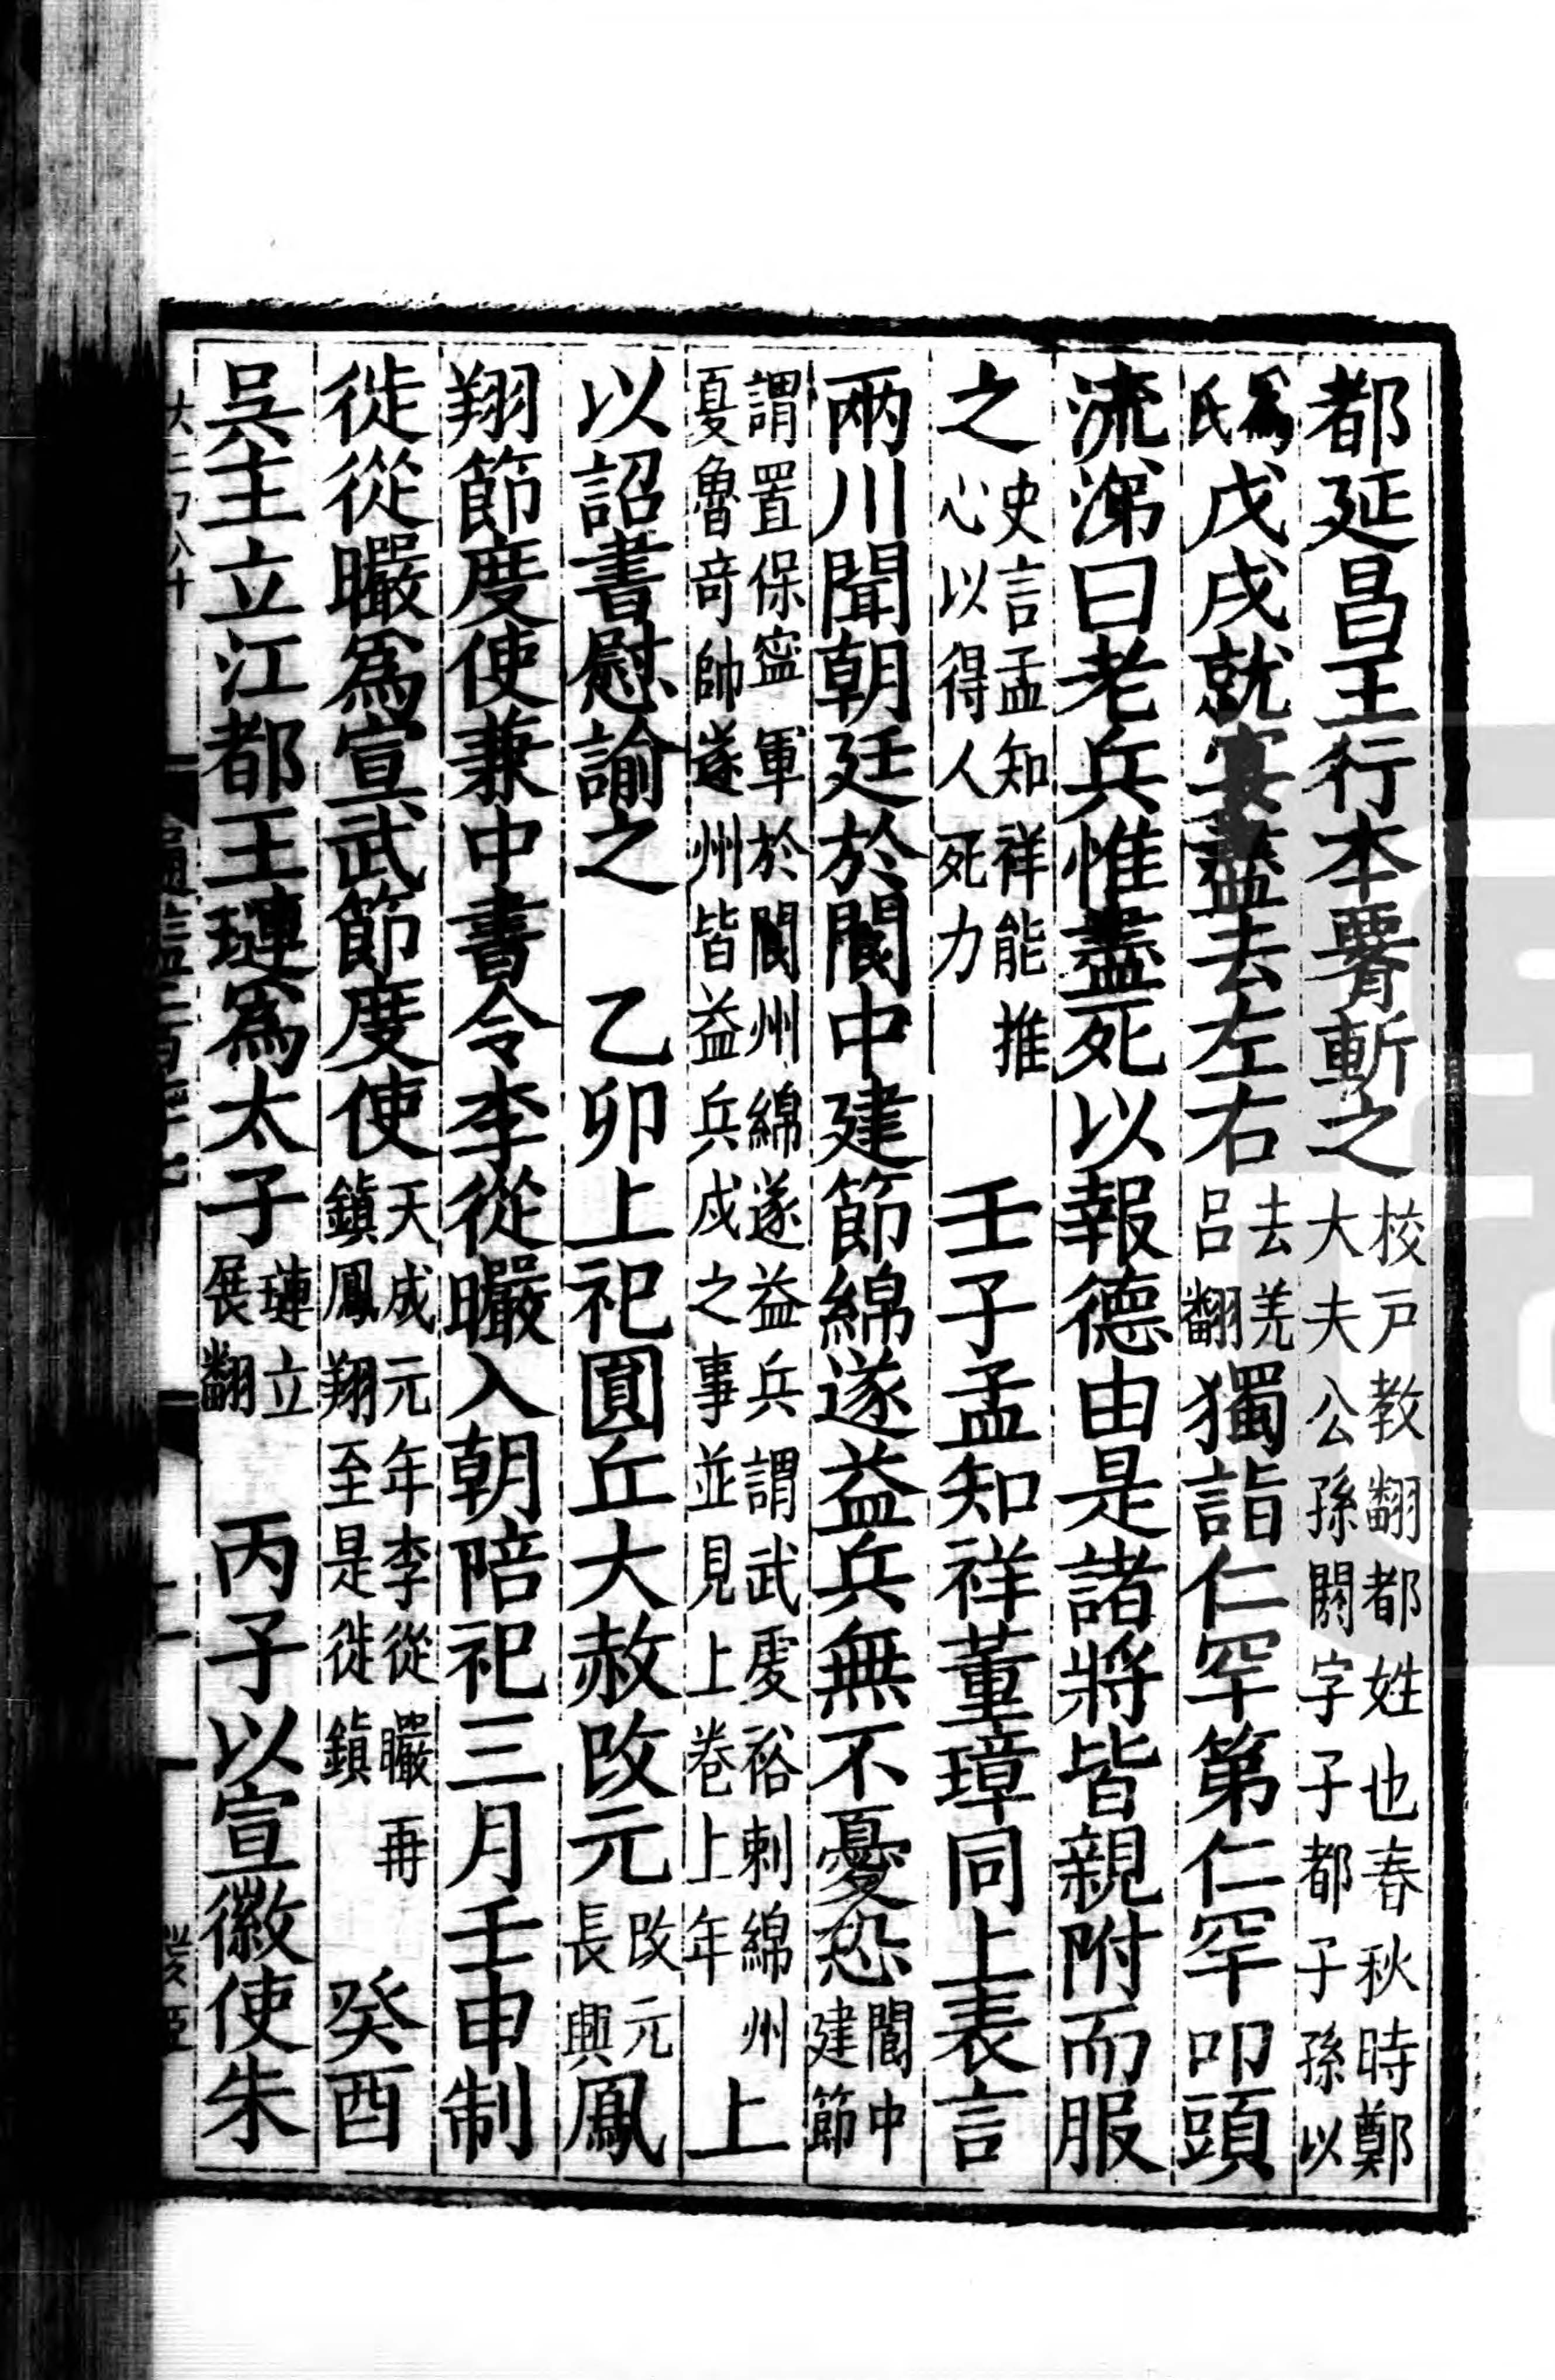 都延昌王行本腰斬之校戶教翻都姓也春秋時鄭大夫公孫閼字子都子孫以
爲氏戊戌就宴盡去左右去羌呂翻獨詣仁罕第仁罕叩頭
流涕曰老兵惟盡死以報德由是諸將皆親附而服
之史言孟知祥能推心以得人死力 壬子孟知祥董璋同上表言
兩川聞朝廷於閬中建節綿遂益兵無不憂恐閬中建節
謂置保寧軍於閬州綿遂益兵謂武虔裕刺綿州夏魯奇帥遂州皆益兵戍之事並見上卷上年上
以詔書慰諭之 乙卯上祀圓丘大赦改元改元長興鳳
翔節度使兼中書令李從曮入朝陪祀三月壬申制
徙從曮爲宣武節度使天成元年李從曮再鎮鳳翔至是徙鎮 癸酉
吳主立江都王璉爲太子璉立展翻 丙子以宣徽使朱